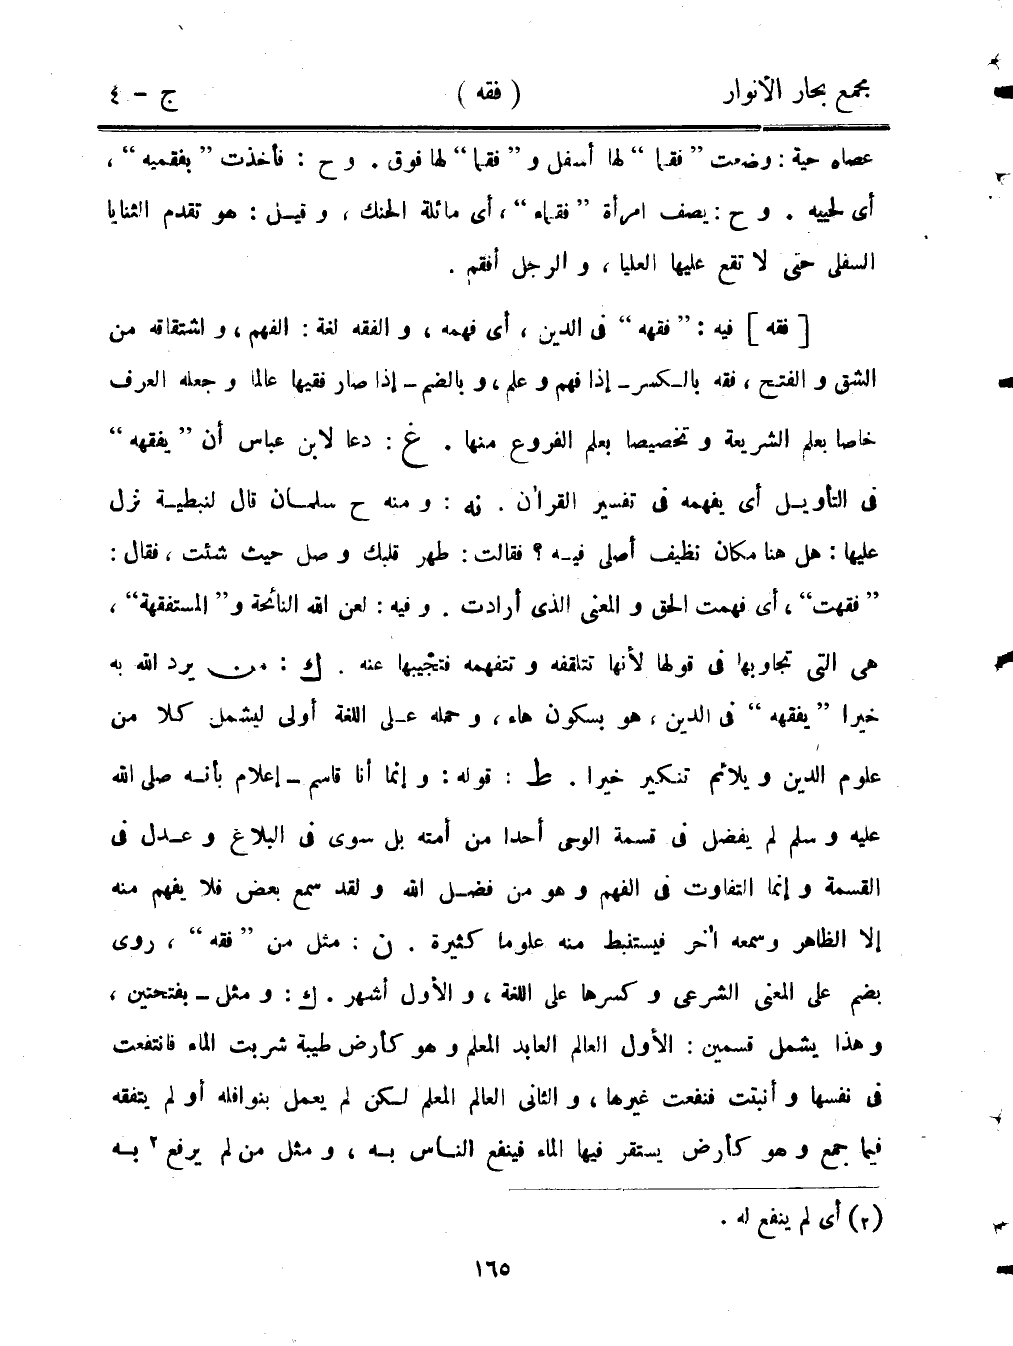 مجمع بحار الأنوار ( فقه ) ج – ٤
عصاه حية : وضعت ”فقما“ لها أسفل و ”فقما“ لها فوق . و ح : فأخذت ”بفقميه“ ،
أى لحييه . و ح : يصف امرأة ”فقماء“ ، أى مائلة الحنك ، و قيل : هو تقدم الثنايا
السفلى حتى لا تقع عليها العليا ، و الرجل أفقم .
[ فقه ] فيه : ”فقهه“ فى الدين ، أى فهمه ، و الفقه لغة : الفهم ، و اشتقاقه من
الشق و الفتح ، فقه بالكسر – إذا فهم و علم ، و بالضم – إذا صار فقيها عالما و جعله العرف
خاصا بعلم الشريعة و تخصيصا بعلم الفروع منها . غ : دعا لابن عباس أن ”يفقهه“
فى التأويل أى يفهمه فى تفسير القراٰن . نه : و منه ح سلمان قال لنبطية نزل
عليها : هل هنا مكان نظيف أصلى فيه ؟ فقالت : طهر قلبك و صل حيث شئت ، فقال :
”فقهت“ ، أى فهمت الحق و المعنى الذى أرادت . و فيه : لعن الله النائحة و ”المستفقهة“ ،
هى التى تجاوبها فى قولها لأنها تتلقفه و تتفهمه فتجيبها عنه . ك : من يرد الله به
خيرا ”يفقهه“ فى الدين ، هو بسكون هاء ، و حمله على اللغة أولى ليشمل كلا من
علوم الدين و يلائم تنكير خيرا . ط : قوله : و إنما أنا قاسم – إعلام بأنه صلى الله
عليه و سلم لم يفضل فى قسمة الوحى أحدا من أمته بل سوى فى البلاغ و عدل فى
القسمة و إنما التفاوت فى الفهم و هو من فضل الله و لقد سمع بعض فلا يفهم منه
إلا الظاهر وسمعه اٰخر فيستنبط منه علوما كثيرة . ن : مثل من ”فقه“ ، روى
بضم على المعنى الشرعى و كسرها على اللغة ، و الأول أشهر . ك : و مثل – بفتحتين ،
و هذا يشمل قسمين : الأول العالم العابد المعلم و هو كأرض طيبة شربت الماء فانتفعت
فى نفسها و أنبتت فنفعت غيرها ، و الثانى العالم المعلم لكن لم يعمل بنوافله أو لم يتفقه
فيما جمع و هو كأرض يستقر فيها الماء فينفع الناس به ، و مثل من لم يرفع ٢ به
(٢) أى لم ينفع له .
١٦٥